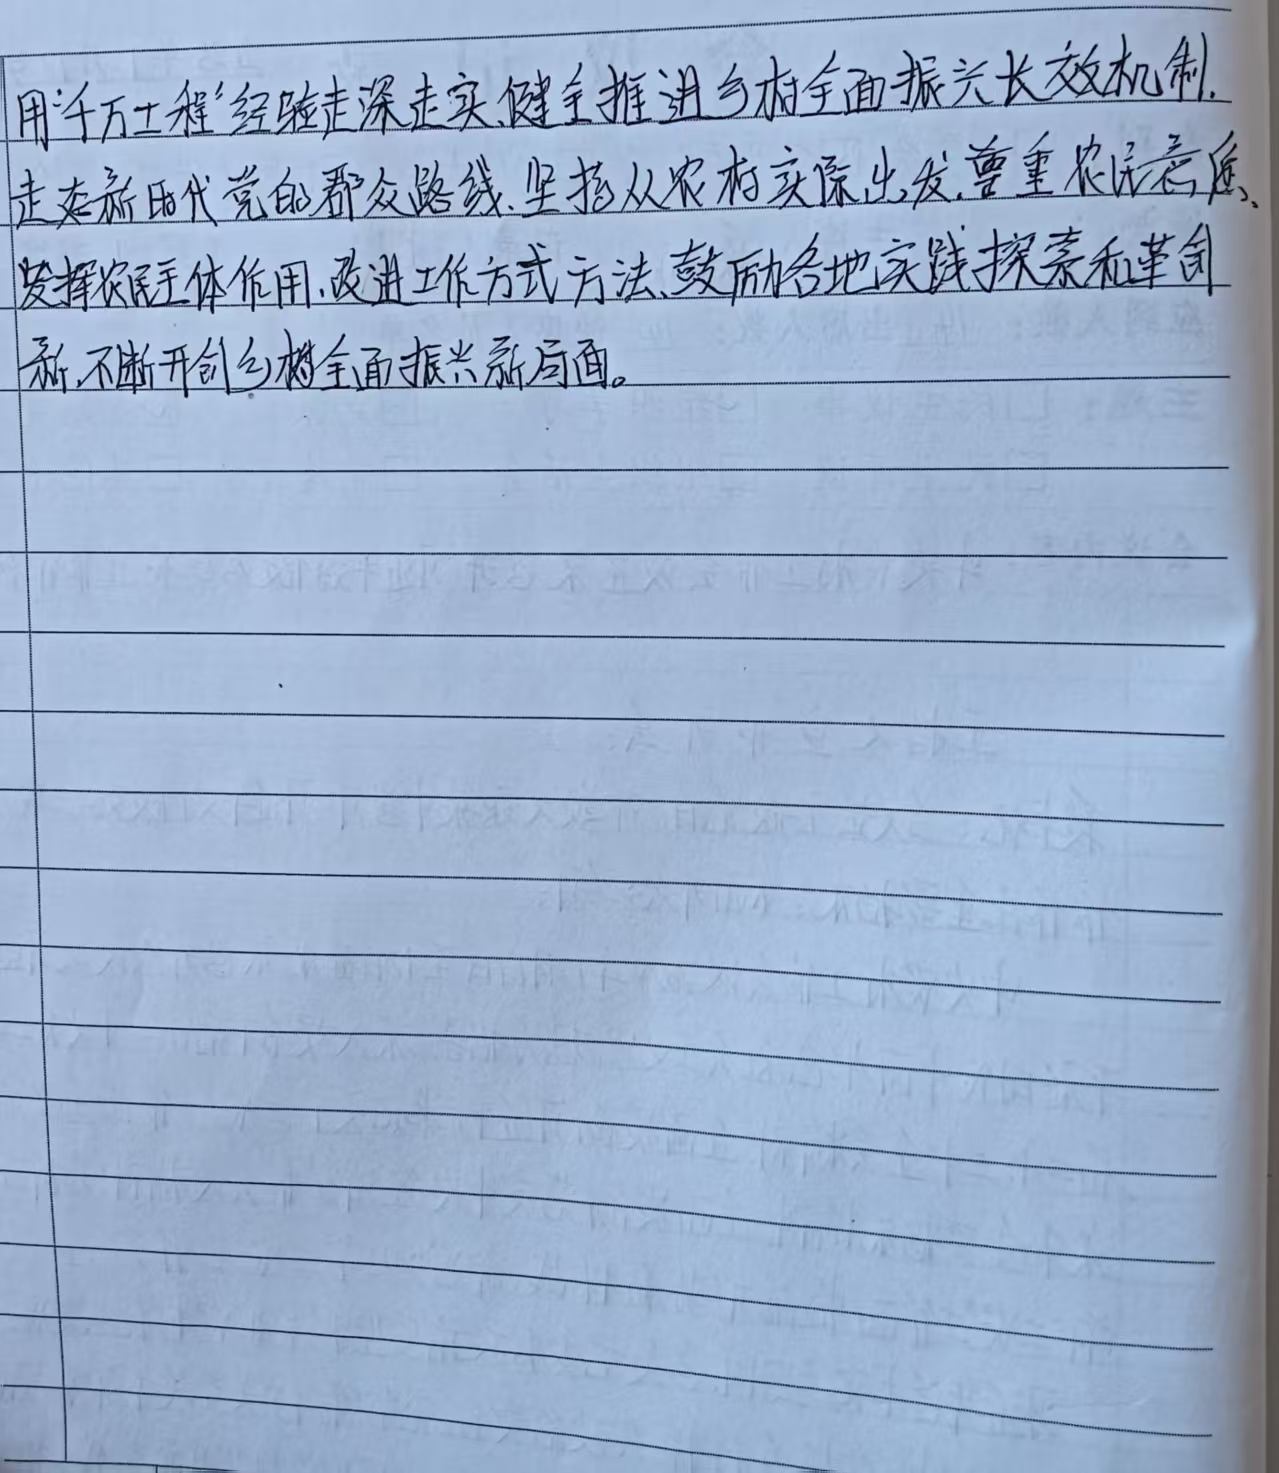 用“千万工程”经验走深走实,健全推进乡村全面振兴长效机制.
走好新时代党的群众路线.坚持从农村实际出发.尊重农民意愿、
发挥农民主体作用.改进工作方式方法、鼓励各地实践探索和革创
新.不断开创乡村全面振兴新局面。